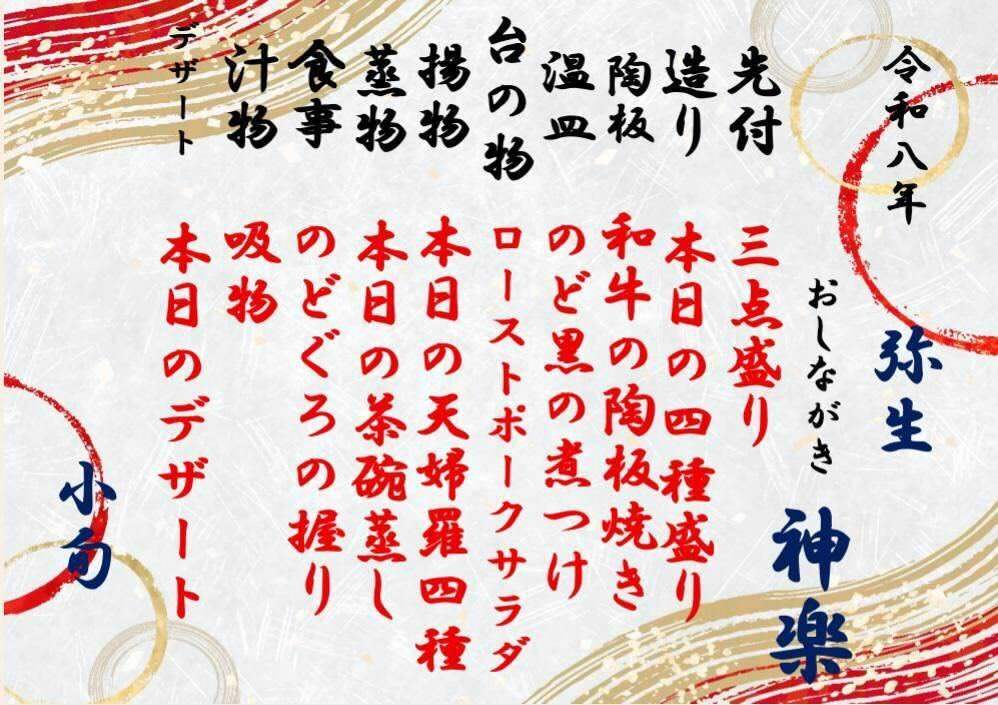 令和八年
弥生
おしながき
神楽
先付
三点盛り
造り
本日の四種盛り
陶板
和牛の陶板焼き
温皿
のど黒の煮つけ
台の物
ローストポークサラダ
揚物
本日の天婦羅四種
蒸物
本日の茶碗蒸し
食事
のどぐろの握り
汁物
吸物
デザート
本日のデザート
小旬